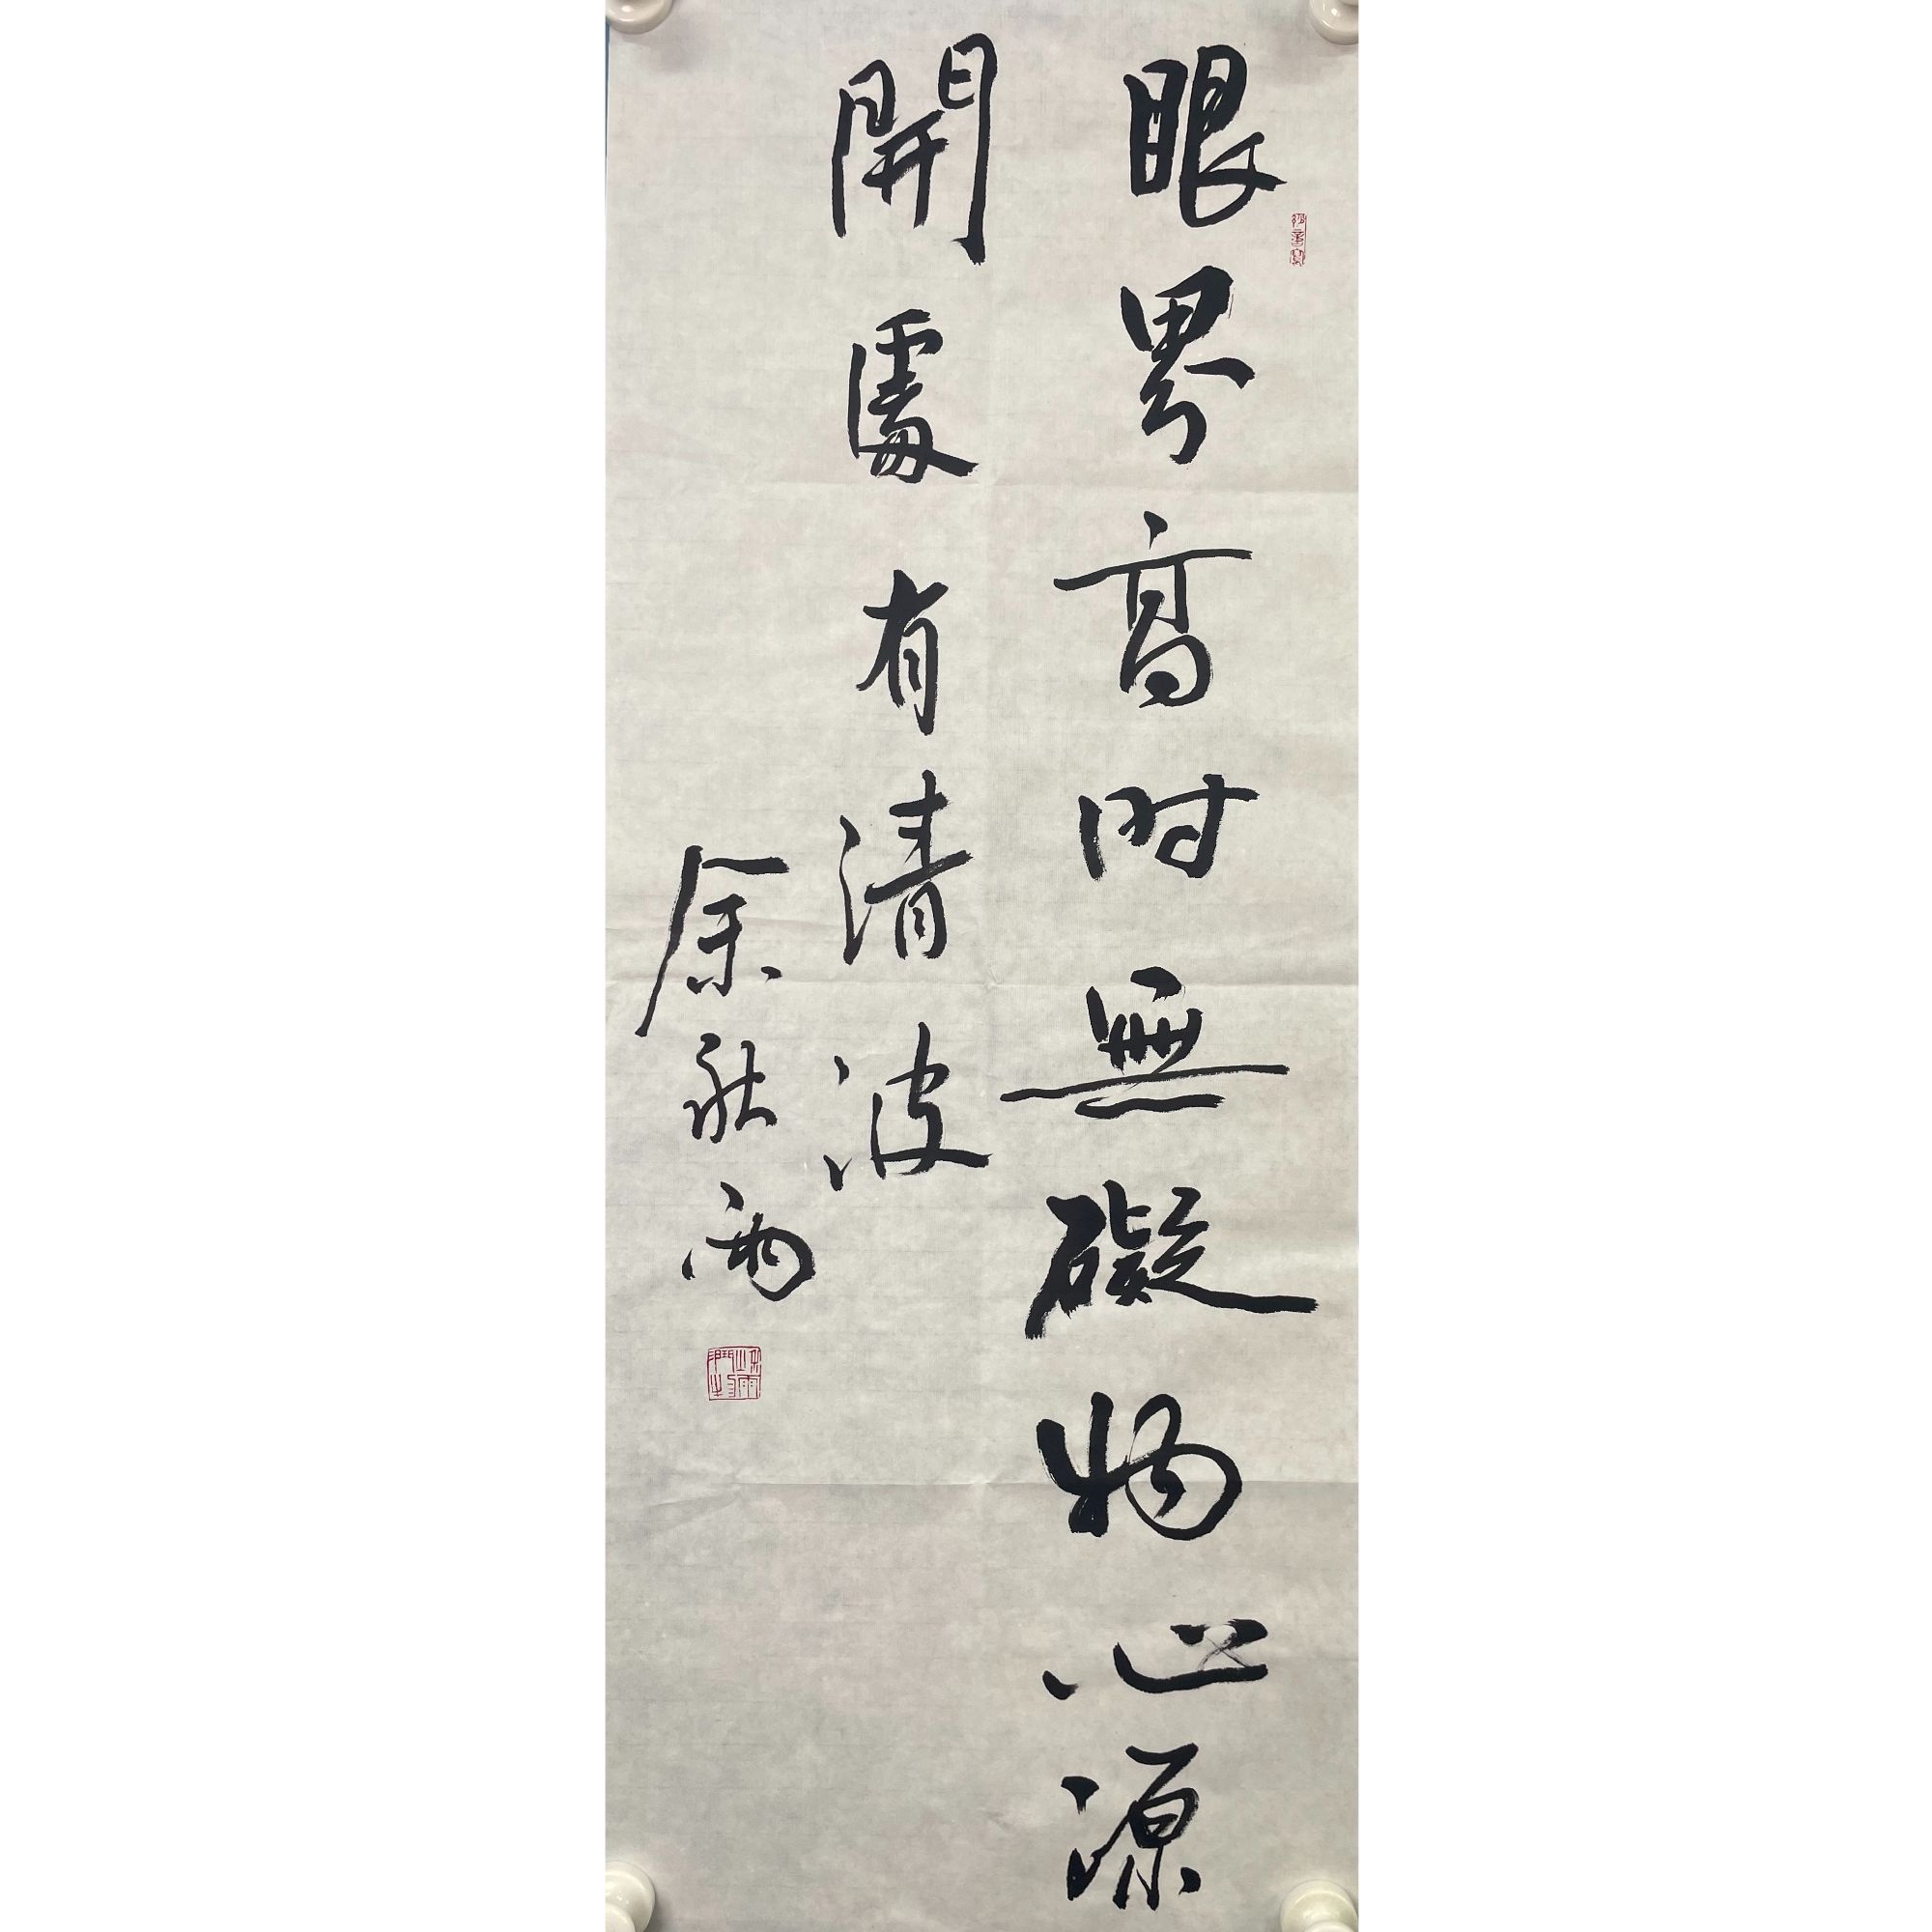 眼界高时無礙物心源
開處有清波
余秋雨